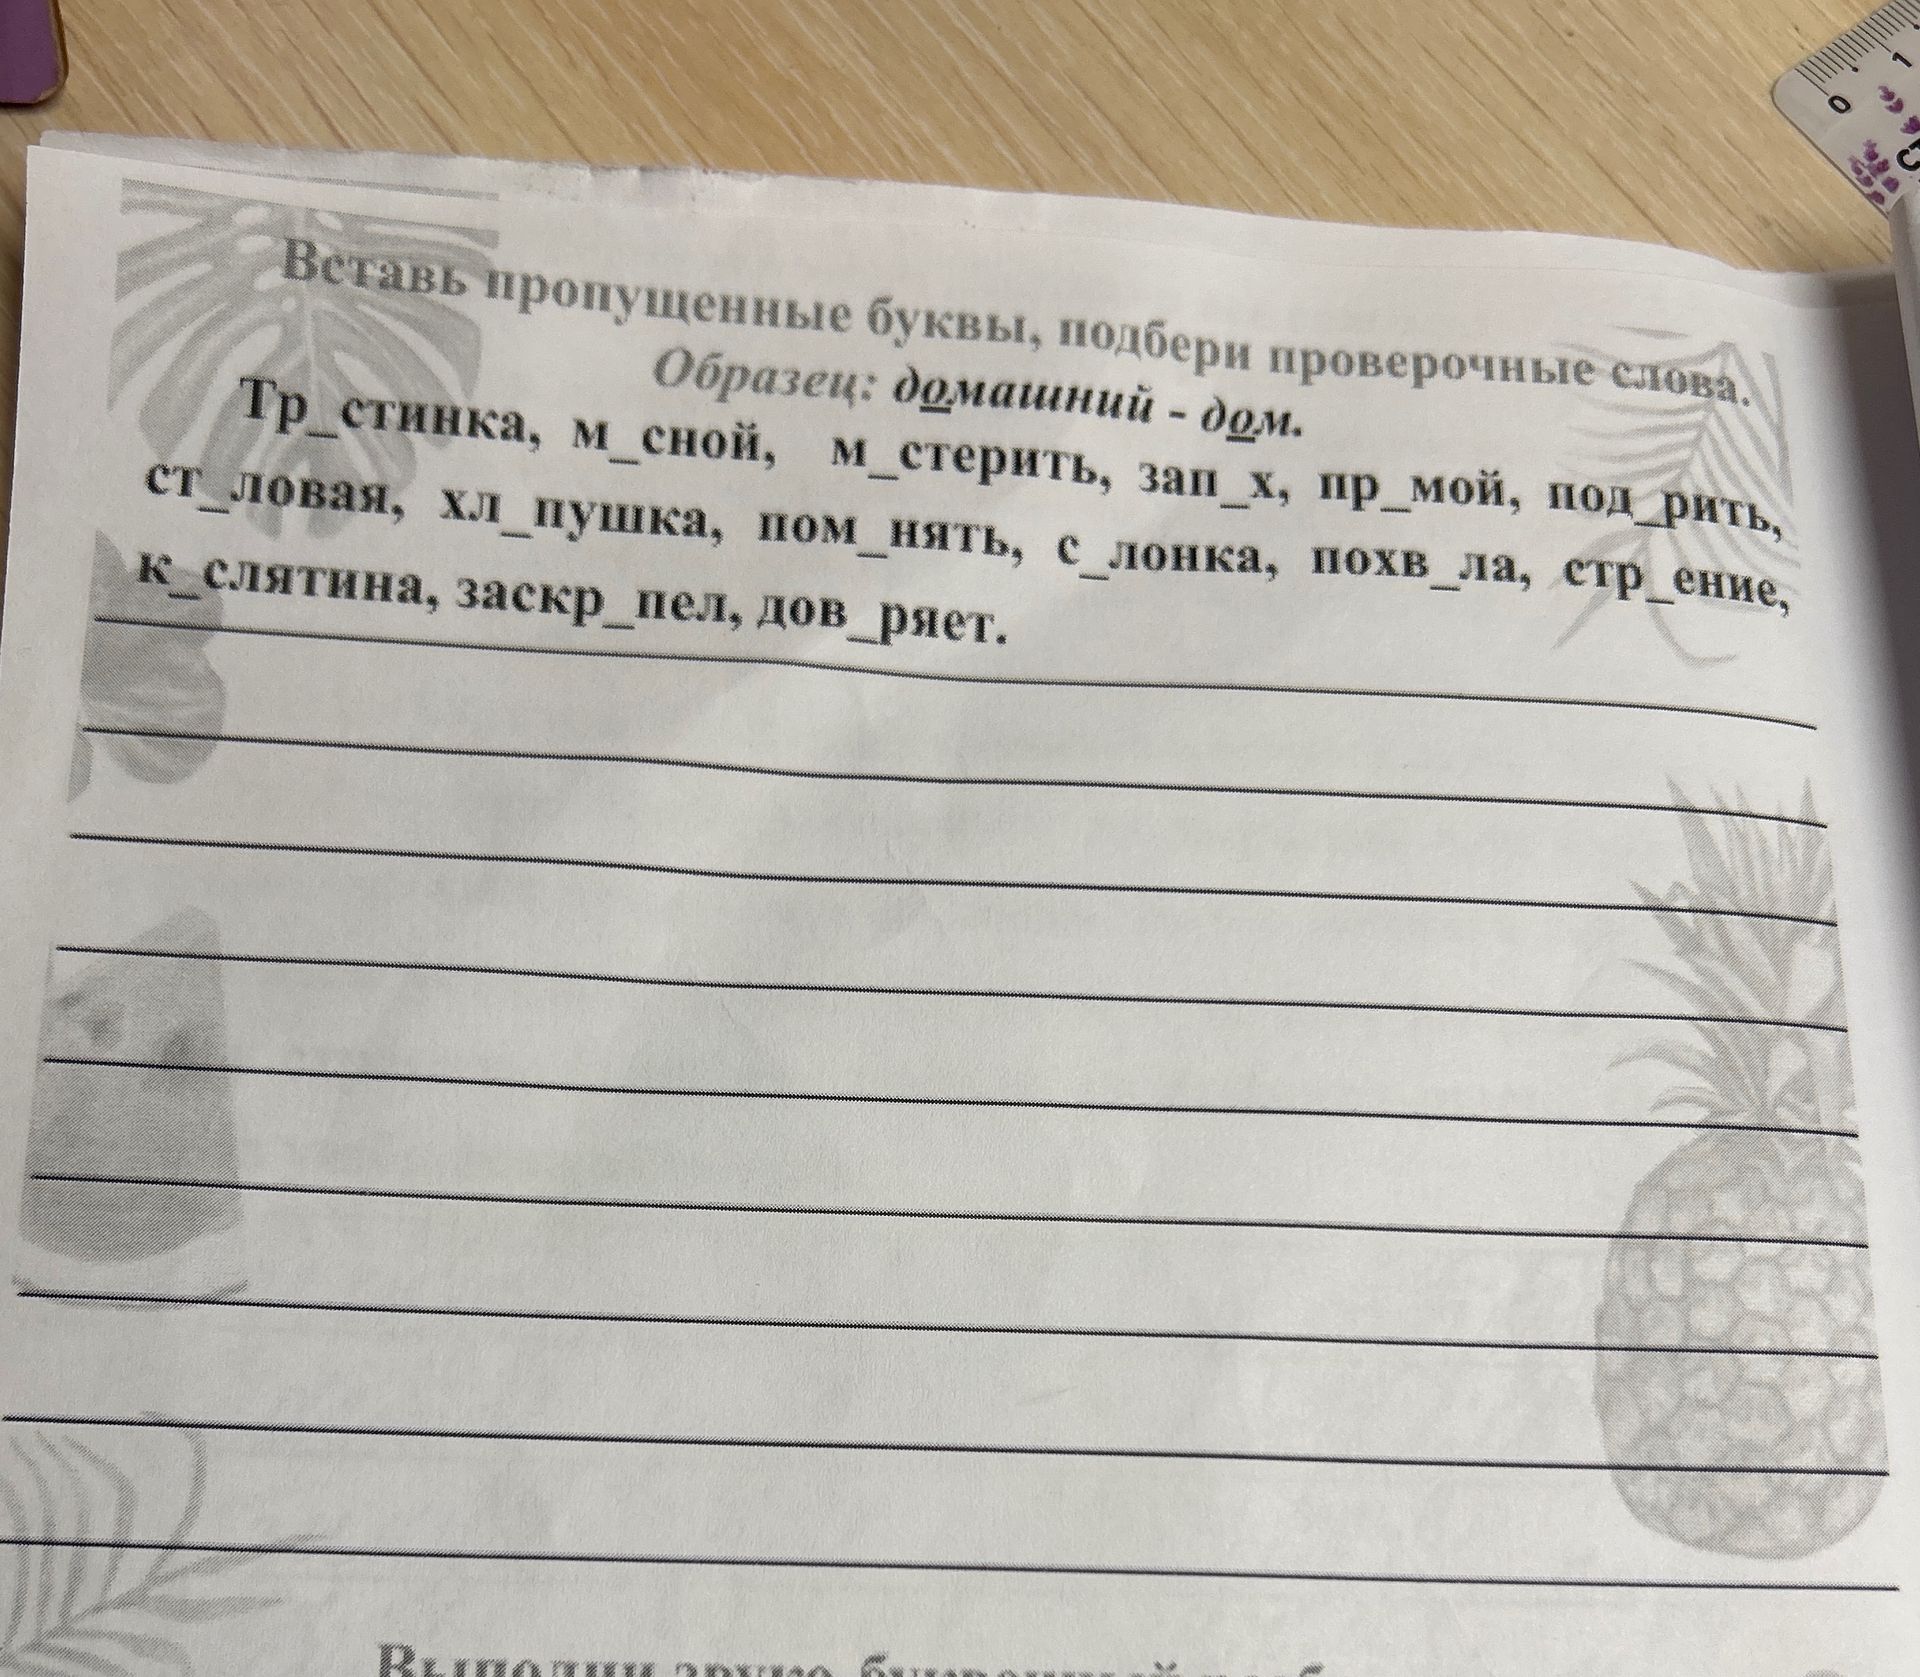 Вставь пропущенные буквы, подбери проверочные слова.
Образец: домашний - дом.
Тр_стинка, м_сной, м_стерить, зап_х, пр_мой, под_рить,
ст_ловая, хл_пушка, пом_нять, с_лонка, похв_ла, стр_ение,
к_слятина, заскр_пел, дов_ряет.
0 1
Выполни